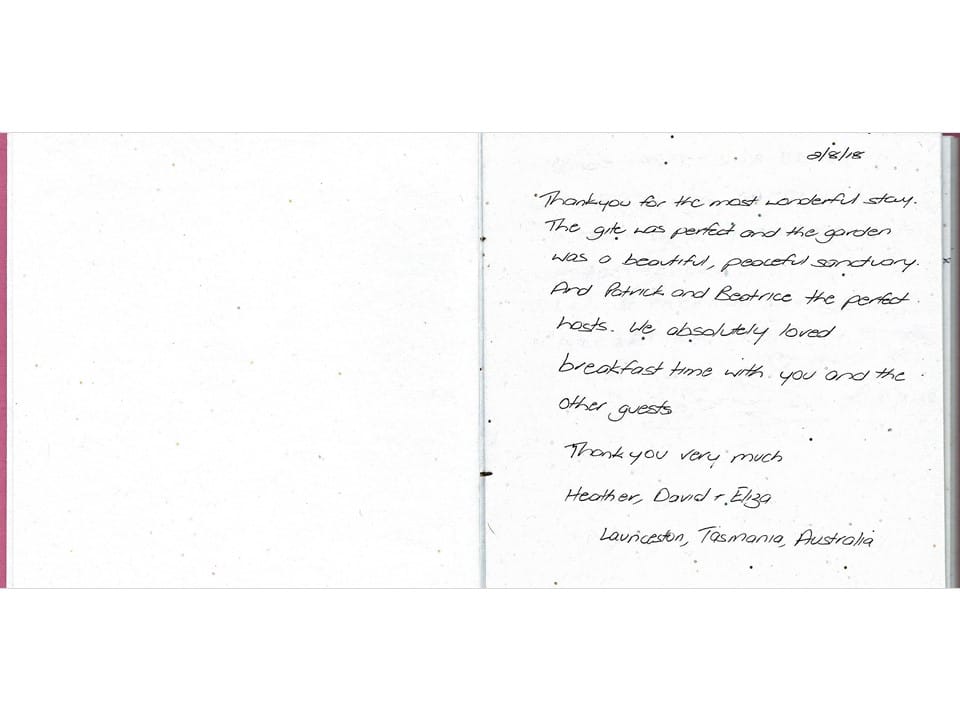 2/8/18
Thankyou for the most wonderful stay.
The gite was perfect and the garden
was a beautiful, peaceful sanctuary.
And Patrick and Beatrice the perfect
hosts. We absolutely loved
breakfast time with you and the
other guests
Thank you very much
Heather, David + Eliza
Launceston, Tasmania, Australia